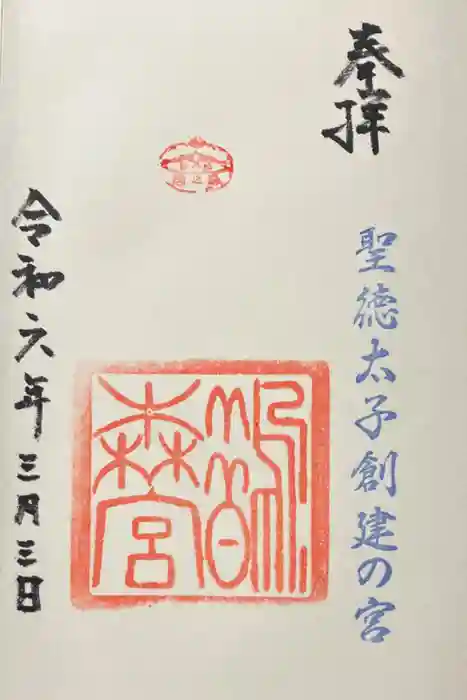 奉拝
聖徳太子創建の宮
鵲森宮
令和六年三月三日